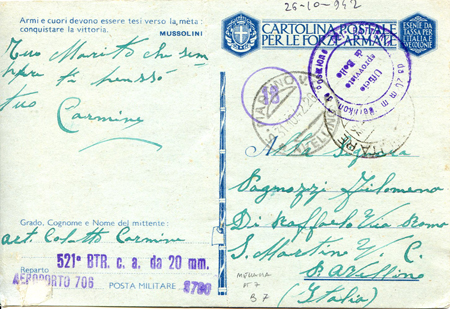 26-10-942
Armi e cuori devono essere tesi verso la mèta:
conquistare la vittoria.
MUSSOLINI
CARTOLINA POSTALE
PER LE FORZE ARMATE
ESENTE DA
TASSA PER
ITALIA E
COLONIE
Tuo Marito che sem
pre ti
tuo
Carmine
Ufficio
di Bollo
18
AVELLINO
Alla Signora
Pagnozzi Filomena
Di Raffaele Via Roma
S. Martino V. C.
P. Avellino
(Italia)
Grado, Cognome e Nome del mittente:
art. Coletto Carmine
Reparto
521° BTR. c. a. da 20 mm.
AEROPORTO 706
POSTA MILITARE
3700
N 7
B 7